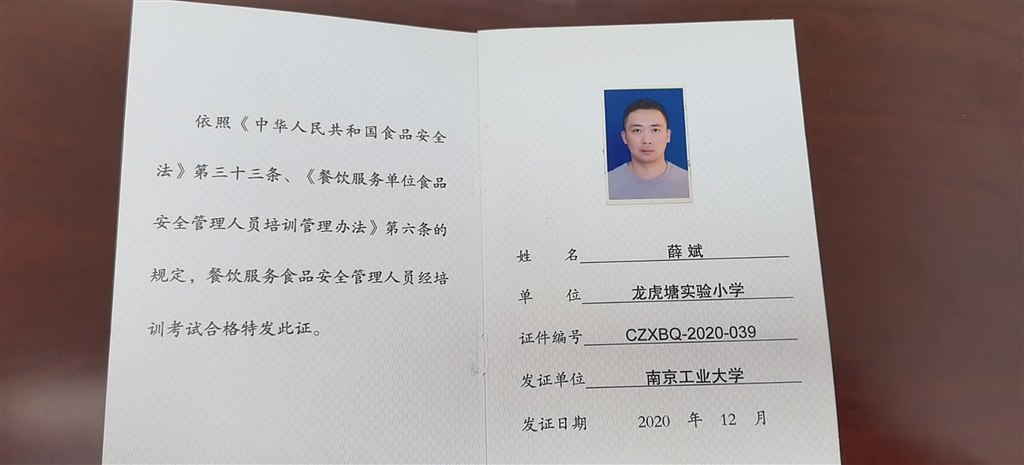 依照《中华人民共和国食品安全
法》第三十三条、《餐饮服务单位食品
安全管理人员培训管理办法》第六条的
规定，餐饮服务食品安全管理人员经培
训考试合格特发此证。
姓 名 薛斌
单 位 龙虎塘实验小学
证件编号 CZXBQ-2020-039
发证单位 南京工业大学
发证日期 2020 年 12 月